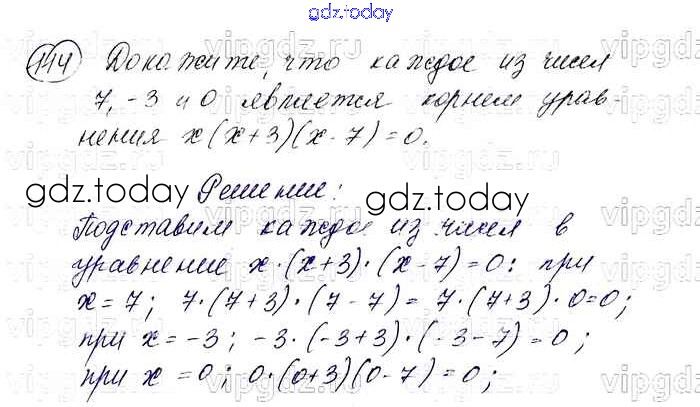 gdz.today
114 Докажите, что каждое из чисел
7, -3 и 0 является корнем урав-
нения x(x+3)(x-7)=0.
gdz.today Решение: gdz.today
Подставим каждое из чисел в
уравнение x·(x+3)·(x-7)=0: при
x=7; 7·(7+3)·(7-7)= 7·(7+3)·0=0;
при x=-3; -3·(-3+3)·(-3-7)=0;
при x=0; 0·(0+3)(0-7)=0;